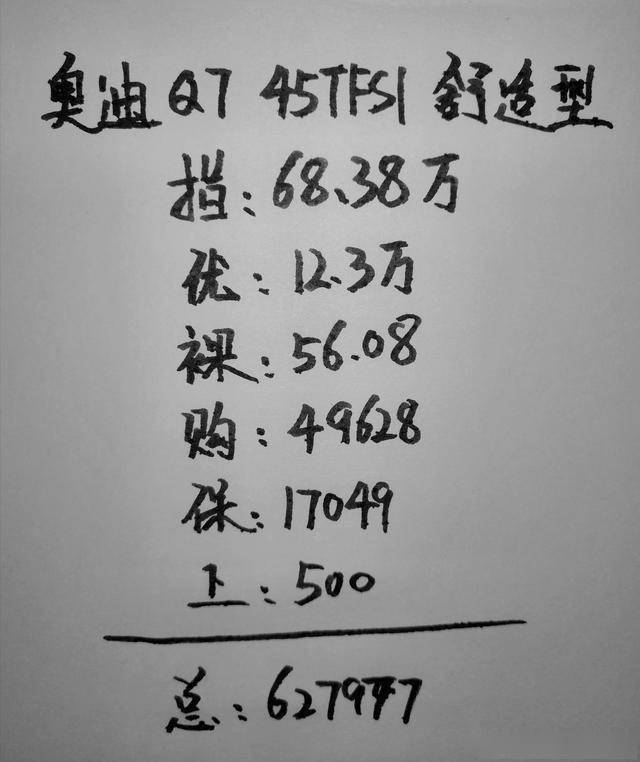 奥迪 Q7 45TFSI 舒适型
指: 68.38万
优: 12.3万
裸: 56.08
购: 49628
保: 17049
上: 500
总: 627977